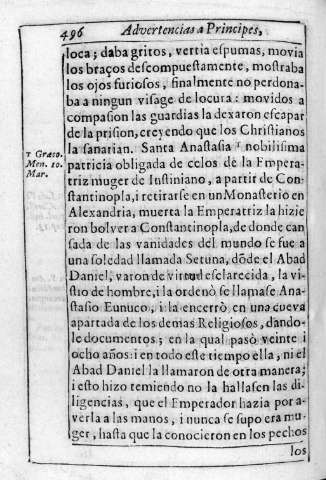 496 Advertencias a Principes,
loca; daba gritos, vertia espumas, movia
los braços descompuestamente, mostraba
los ojos furiosos, finalmente no perdona-
ba a ningun visage de locura: movidos a
compasion las guardias la dexaron escapar
de la prision, creyendo que los Christianos
la sanarian. Santa Anastasia ¹ nobilisima
patricia obligada de celos de la Empera-
triz muger de Iustiniano, a partir de Con-
stantinopla, i retirarse en un Monasterio en
Alexandria, muerta la Emperatriz la hizie
ron bolver a Constantinopla, de donde can
sada de las vanidades del mundo se fue a
una soledad llamada Setuna, dōde el Abad
Daniel, varon de virtud esclarecida, la vi-
stio de hombre, i la ordenò se llamase Ana-
stasio Eunuco, i la encerrò en una cueva
apartada de los demas Religiosos, dando-
le documentos; en la qual pasò veinte i
ocho años: i en todo este tiempo ella, ni el
Abad Daniel la llamaron de otra manera;
i esto hizo temiendo no la hallasen las di-
ligencias, que el Emperador hazia por a-
verla a las manos, i nunca se supo era mu-
ger, hasta que la conocieron en los pechos
los
1 Græco.
Men. 10.
Mar.